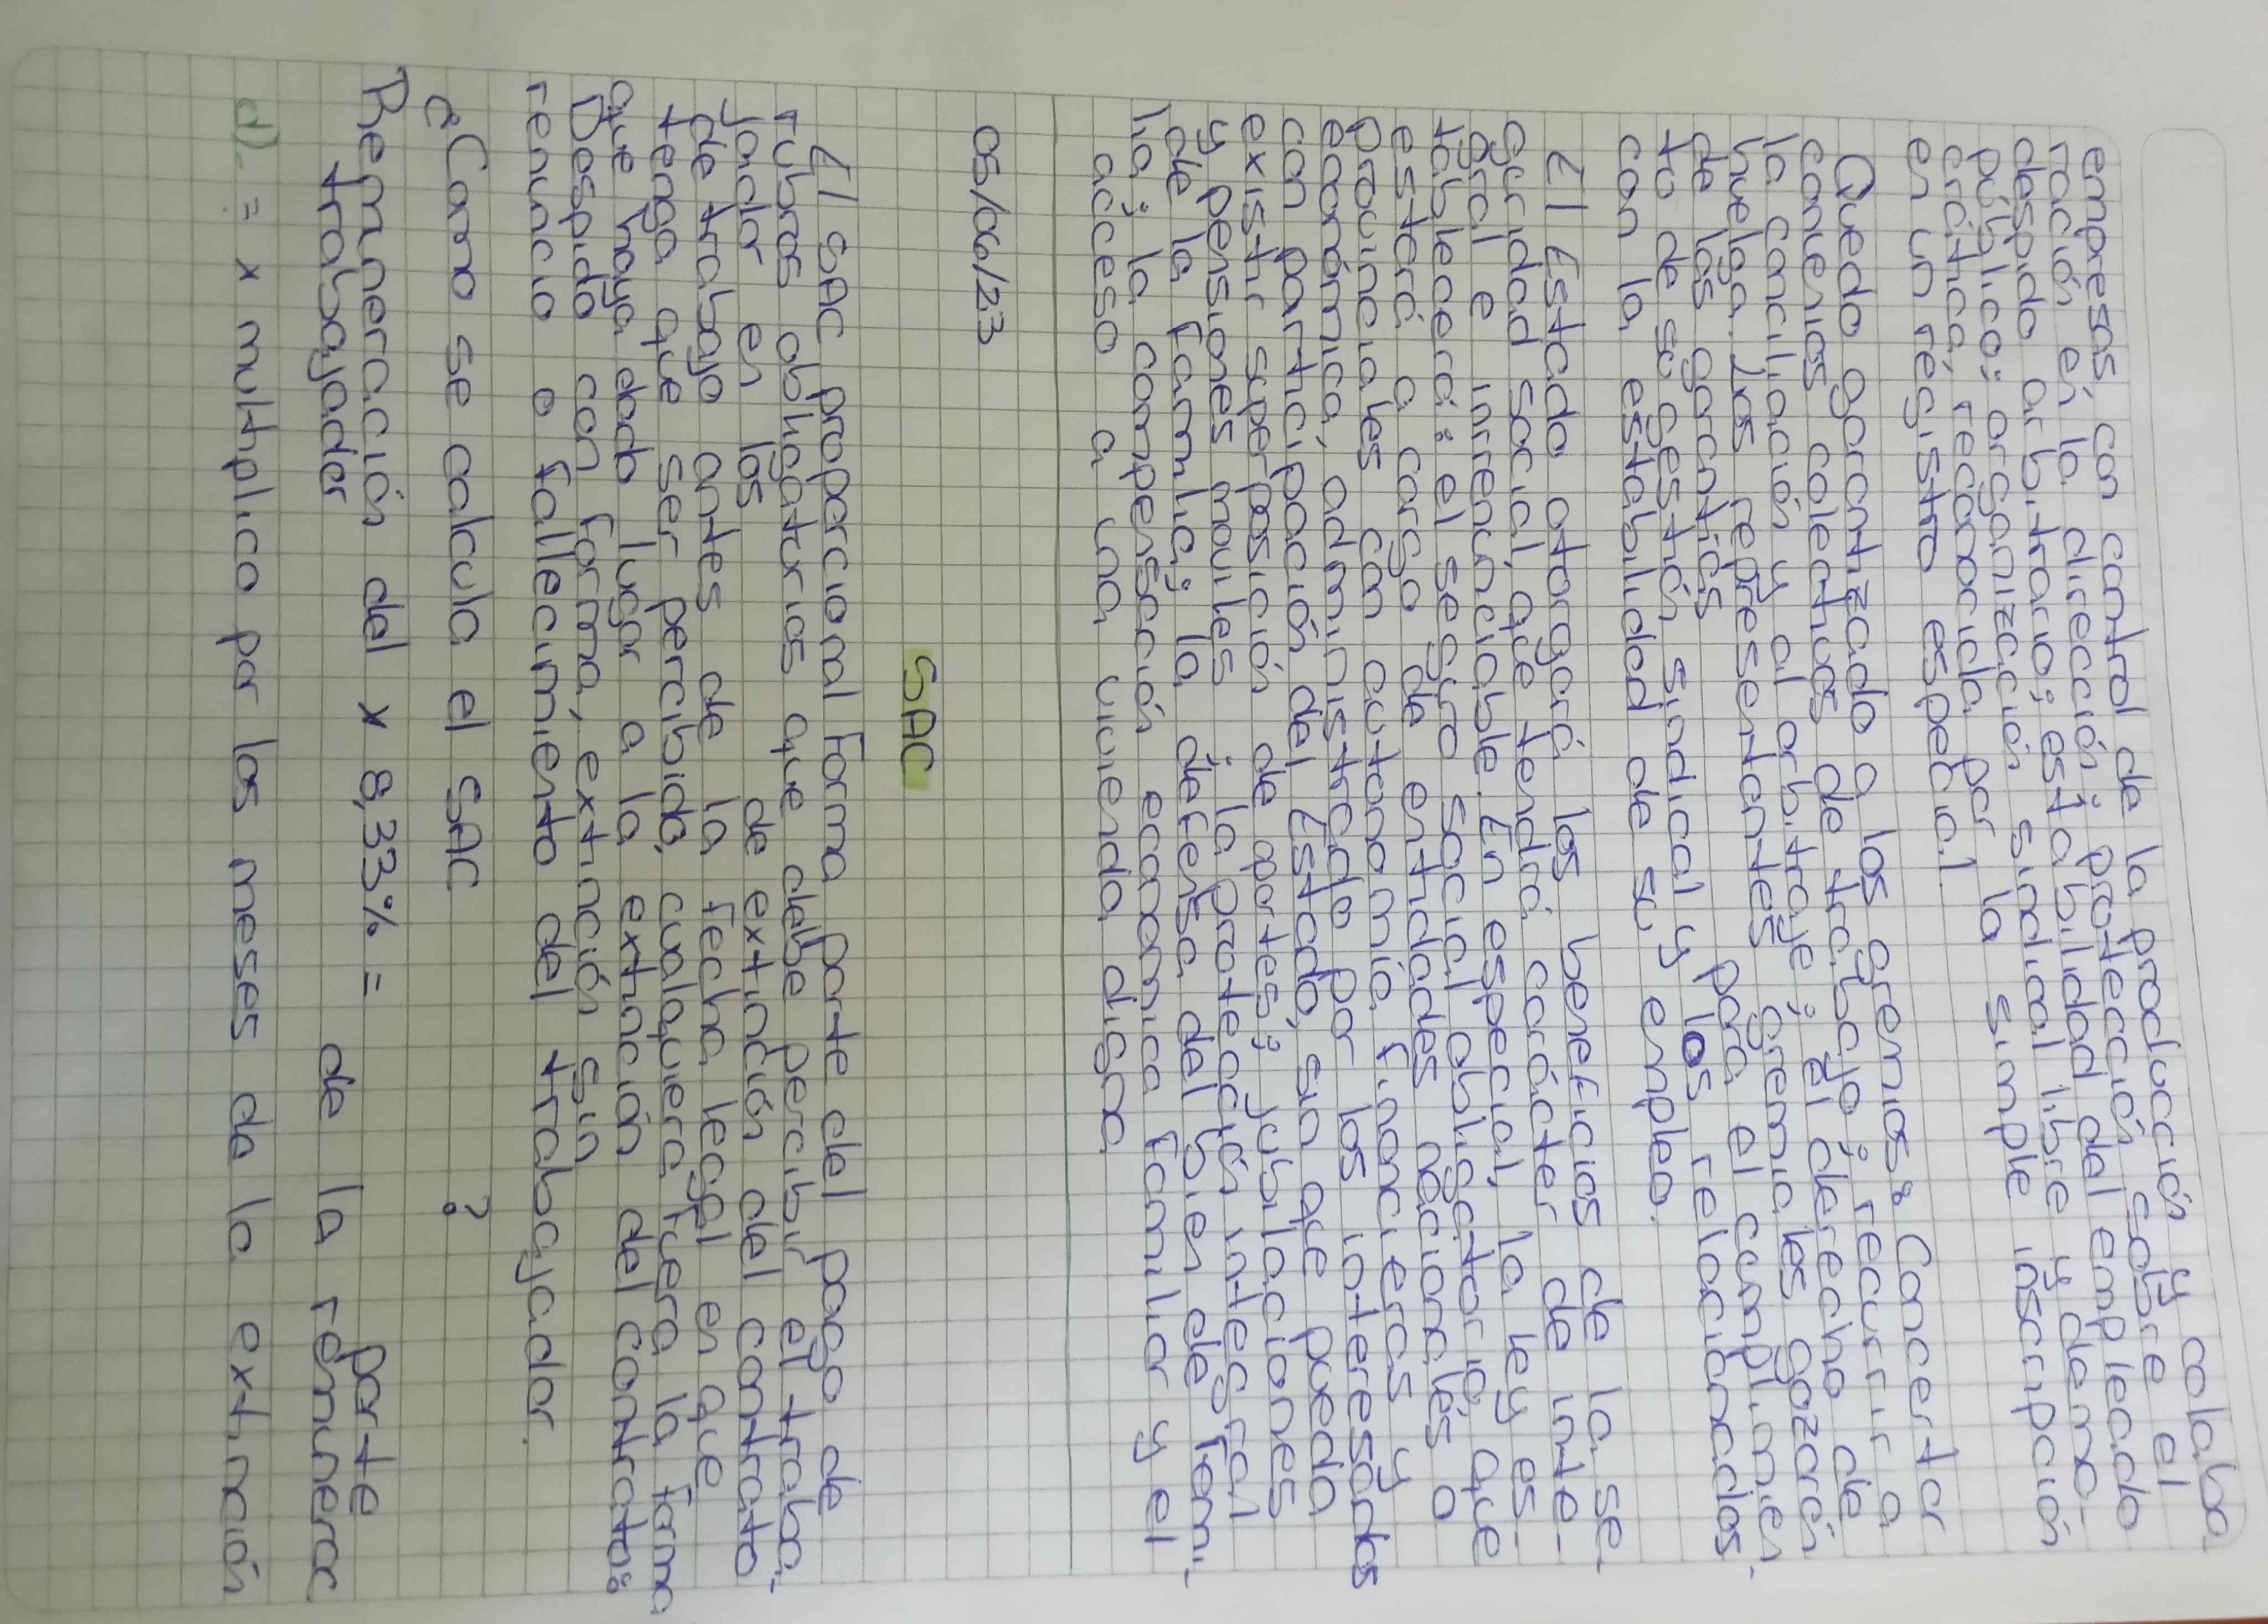 empresas, con control de la producción y colabo.
ración en la dirección; protección sobre el
despido arbitrario; estabilidad del empleado
público; organización sindical libre y demo-
crática, reconocida por la simple inscripción
en un registro especial.
Queda garantizado a los gremios: Concertar
convenios colectivos de trabajo; recurrir a
la conciliación y al arbitraje; el derecho de
huelga. Los representantes gremiales gozarán
de las garantías para el cumplimien.
to de su gestión sindical y los relacionados
con la estabilidad de su empleo.
El Estado otorgará los beneficios de la se-
guridad social, que tendrá carácter de inte-
gral e irrenunciable. En especial, la ley es-
tablecerá: el seguro social obligatorio, que
estará a cargo de entidades nacionales o
provinciales con autonomía financiera y
económica, administrada por los interesados
con participación del Estado, sin que pueda
existir superposición de aportes; jubilaciones
y pensiones moviles; la protección integral
de la familia; la defensa del bien de fami.
lia; la compensación económica familiar y el
acceso a una vivienda digna.
05/06/23
SAC
El SAC proporcional forma parte del pago de
rubros obligatorios que debe percibir el traba-
jador en los de extinción del contrato
de trabajo antes de la fecha legal en que
tenga que ser percibido, cualquiera fuera la forma
que haya dado lugar a la extinción del contrato:
Despido con forma, extinción sin
renuncio o fallecimiento del trabajador.
¿Como se calcula el SAC ?
Remuneración del x 8,33% = parte
trabajador de la remunera
d). = x multiplico por los meses de la extinción